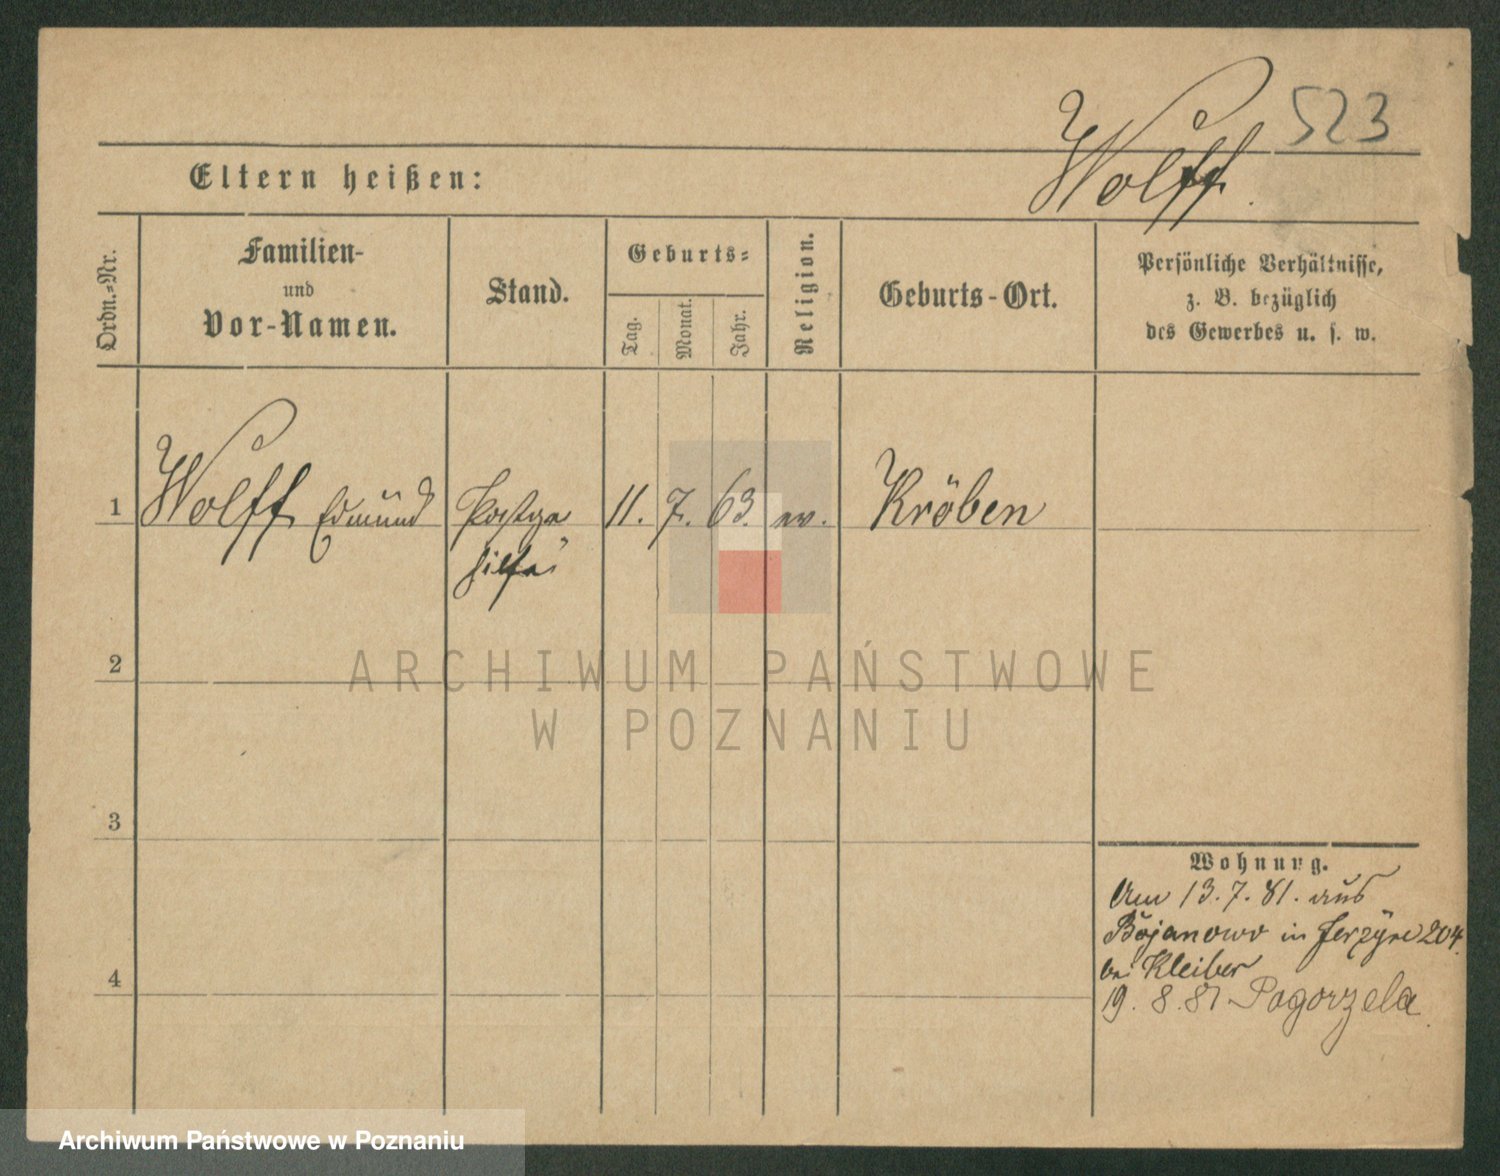 523
Wolff.
Eltern heißen:
Ordn.-Nr.
Familien-
und
Vor-Namen.
Stand.
Geburts-
Tag.
Monat.
Jahr.
Religion.
Geburts-Ort.
Persönliche Verhältnisse,
z. B. bezüglich
des Gewerbes u. s. w.
1 Wolff Edmund Postge 11. 7. 63. ev. Kröben
hilfe
2
ARCHIWUM PAŃSTWOWE
W POZNANIU
3
4
Wohnung.
Am 13. 7. 81. aus
Bojanowo in Jerzyce 204.
bei Kleiber
19. 8. 81 Pogorzela
Archiwum Państwowe w Poznaniu